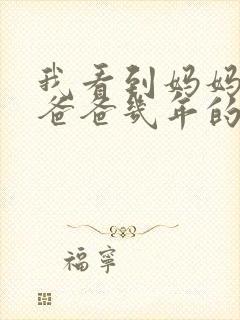 我看到妈妈
爸爸几年的
福寧